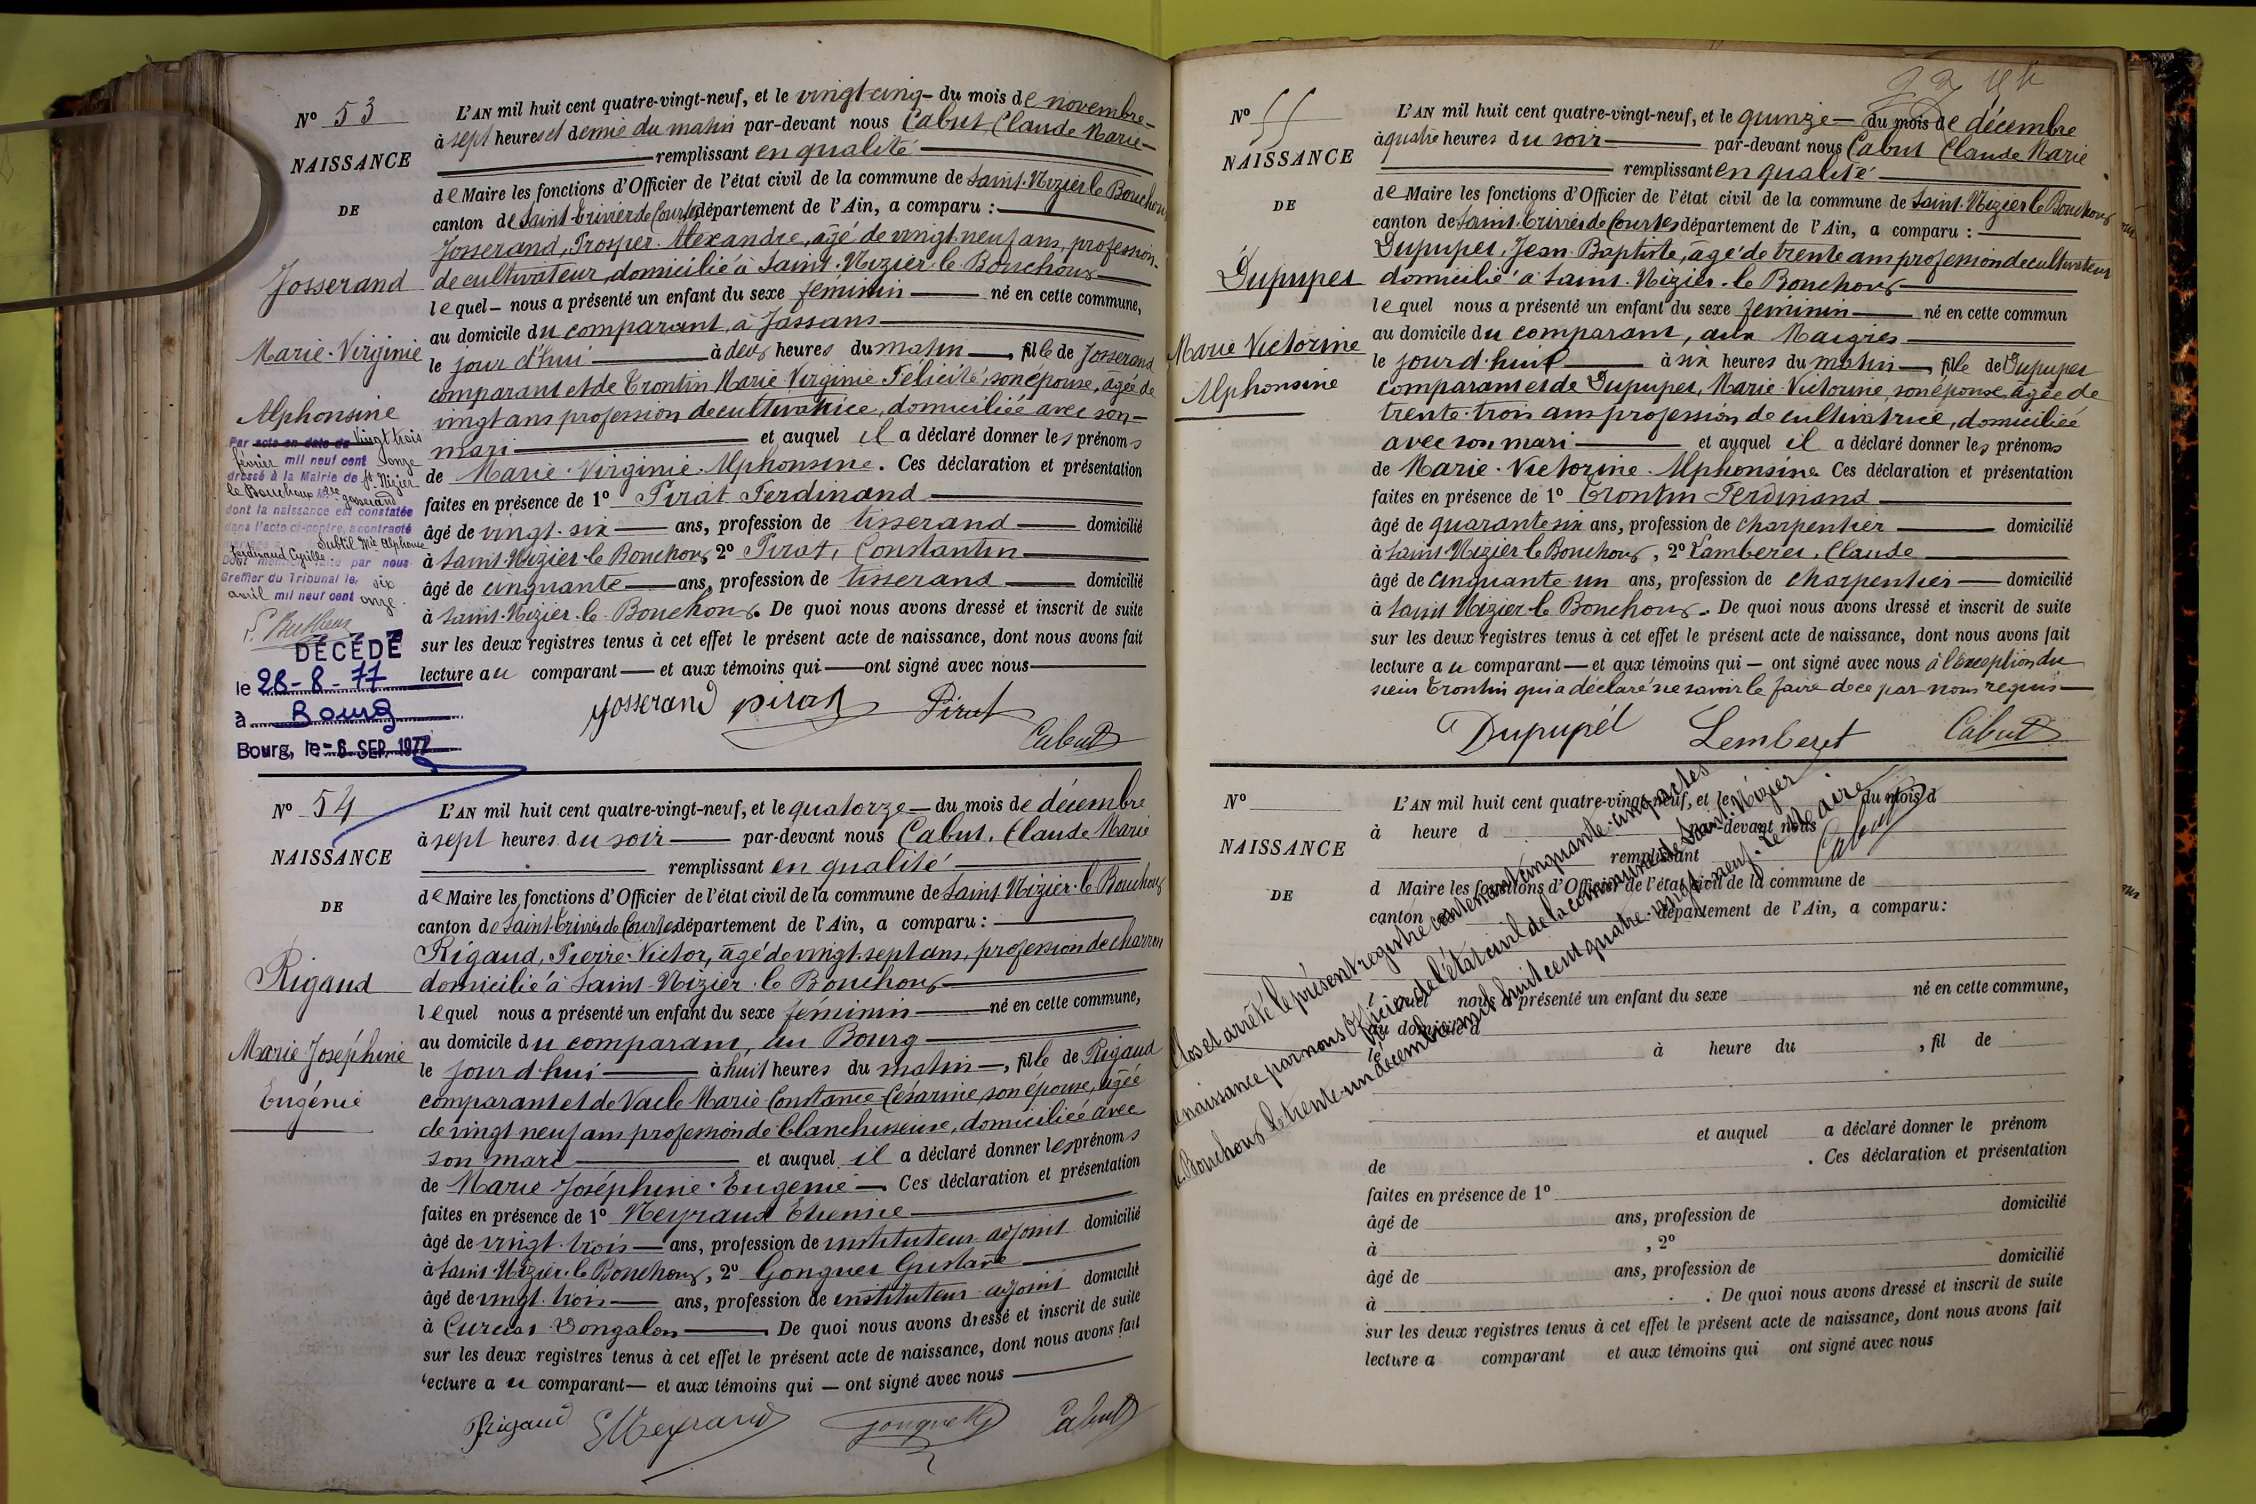 N° 53
NAISSANCE
DE
Josserand
Marie-Virginie
Alphonsine
Par acte en date du vingt trois
février mil neuf cent onze
dressé à la Mairie de St Nizier
le Bouchoux Mlle Josserand
dont la naissance est constatée
dans l'acte ci-contre, a contracté
Subtil Mie Alphonse
Ferdinand Cyrille
Dont mention faite par nous
Greffier du Tribunal le, six
avril mil neuf cent onze.
DÉCÉDÉ
le 28-8-77
à Bourg
Bourg, le - 6 SEP. 1977
L'AN mil huit cent quatre-vingt-neuf, et le vingt-cinq du mois de novembre
à sept heures et demie du matin par-devant nous Cabut, Claude Marie
remplissant en qualité
de Maire les fonctions d'Officier de l'état civil de la commune de Saint-Nizier le Bouchoux
canton de Saint-Trivier de Courtes département de l'Ain, a comparu :
Josserand, Prosper-Alexandre, âgé de vingt-neuf ans, profession
de cultivateur, domicilié à Saint-Nizier-le-Bouchoux
lequel nous a présenté un enfant du sexe féminin né en cette commune,
au domicile du comparant, à Jassans
le jour d'hui à deux heures du matin, fille de Josserand
comparant et de Trontin Marie Virginie Félicité, son épouse, âgée de
vingt ans profession de cultivatrice, domiciliée avec son
mari et auquel il a déclaré donner les prénoms
de Marie-Virginie-Alphonsine. Ces déclaration et présentation
faites en présence de 1° Pirat Ferdinand
âgé de vingt-six ans, profession de tisserand domicilié
à Saint-Nizier-le-Bouchoux, 2° Pirat, Constantin
âgé de cinquante ans, profession de tisserand domicilié
à Saint-Nizier-le-Bouchoux. De quoi nous avons dressé et inscrit de suite
sur les deux registres tenus à cet effet le présent acte de naissance, dont nous avons fait
lecture au comparant et aux témoins qui ont signé avec nous
Josserand Pirat Pirat
Cabut
N° 54
NAISSANCE
DE
Rigaud
Marie Joséphine
Eugénie
L'AN mil huit cent quatre-vingt-neuf, et le quatorze du mois de décembre
à sept heures du soir par-devant nous Cabut, Claude Marie
remplissant en qualité
de Maire les fonctions d'Officier de l'état civil de la commune de Saint-Nizier-le Bouchoux
canton de Saint-Trivier de Courtes département de l'Ain, a comparu :
Rigaud, Pierre-Victor, âgé de vingt-sept ans, profession de charron
domicilié à Saint-Nizier-le Bouchoux
lequel nous a présenté un enfant du sexe féminin né en cette commune,
au domicile du comparant, au Bourg
le jour d'hui à huit heures du matin, fille de Rigaud
comparant et de Vacle Marie-Constance-Césarine son épouse, âgée
de vingt neuf ans profession de blanchisseuse, domiciliée avec
son mari et auquel il a déclaré donner les prénoms
de Marie-Joséphine-Eugénie. Ces déclaration et présentation
faites en présence de 1° Neyraud Etienne
âgé de vingt-trois ans, profession de instituteur-adjoint domicilié
à Saint-Nizier-le Bouchoux, 2° Gonguet Gustave
âgé de vingt-trois ans, profession de instituteur-adjoint domicilié
à Curciat-Dongalon. De quoi nous avons dressé et inscrit de suite
sur les deux registres tenus à cet effet le présent acte de naissance, dont nous avons fait
lecture au comparant et aux témoins qui ont signé avec nous
Rigaud E Neyraud Gonguet G Cabut
N° 55
NAISSANCE
DE
Dupupet
Marie Victorine
Alphonsine
L'AN mil huit cent quatre-vingt-neuf, et le quinze du mois de décembre
à quatre heures du soir par-devant nous Cabut Claude Marie
remplissant en qualité
de Maire les fonctions d'Officier de l'état civil de la commune de Saint-Nizier le Bouchoux
canton de Saint-Trivier de Courtes département de l'Ain, a comparu :
Dupupet, Jean-Baptiste, âgé de trente ans profession de cultivateur
domicilié à Saint-Nizier-le Bouchoux
lequel nous a présenté un enfant du sexe féminin né en cette commun
au domicile du comparant, aux Maigres
le jour d'hui à six heures du matin, fille de Dupupet
comparant et de Dupupet, Marie-Victorine, son épouse, âgée de
trente-trois ans profession de cultivatrice, domiciliée
avec son mari et auquel il a déclaré donner les prénoms
de Marie-Victorine-Alphonsine Ces déclaration et présentation
faites en présence de 1° Trontin Ferdinand
âgé de quarante six ans, profession de charpentier domicilié
à Saint-Nizier le Bouchoux, 2° Lamberet, Claude
âgé de cinquante-un ans, profession de charpentier domicilié
à Saint Nizier-le Bouchoux. De quoi nous avons dressé et inscrit de suite
sur les deux registres tenus à cet effet le présent acte de naissance, dont nous avons fait
lecture au comparant et aux témoins qui ont signé avec nous à l'exception du
sieur Trontin qui a déclaré ne savoir le faire de ce par nous requis
Dupupél Lemberet Cabut
N°
NAISSANCE
DE
L'AN mil huit cent quatre-vingt-neuf, et le du mois d
à heure d par-devant nous
remplissant
d Maire les fonctions d'Officier de l'état civil de la commune de
canton département de l'Ain, a comparu :
lequel nous a présenté un enfant du sexe né en cette commune,
au domicile d
le à heure du , fil de
et auquel a déclaré donner le prénom
de . Ces déclaration et présentation
faites en présence de 1°
âgé de ans, profession de domicilié
à , 2°
âgé de ans, profession de domicilié
à . De quoi nous avons dressé et inscrit de suite
sur les deux registres tenus à cet effet le présent acte de naissance, dont nous avons fait
lecture a comparant et aux témoins qui ont signé avec nous
Clos et arrêté le présent registre contenant cinquante-cinq actes
de naissance par nous Officier de l'état civil de la commune de Saint-Nizier
le Bouchoux le trente-un décembre mil huit cent quatre-vingt-neuf. Le Maire
Cabut